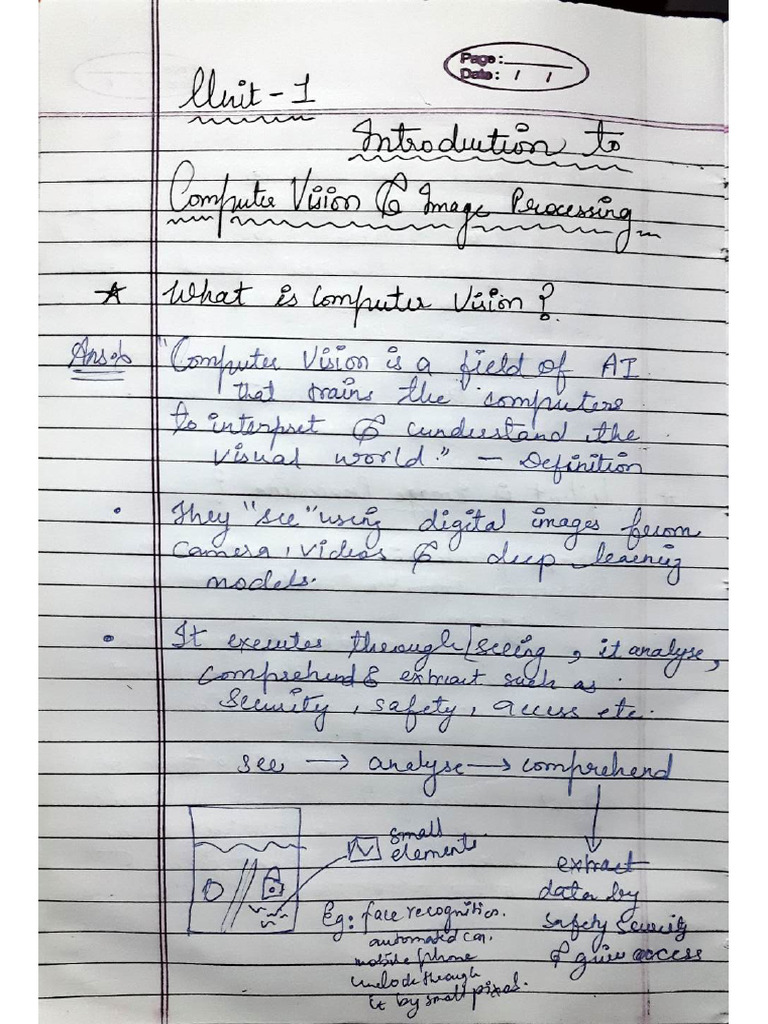 Page:
Date: / /
Unit - 1
Introduction to
Computer Vision & Image Processing
What is Computer Vision?
Ans:- "Computer Vision is a field of AI
that trains the computers
to interpret & understand the
visual world." - Definition
They "see" using digital images from
camera, videos & deep learning
models.
It executes through [seeing, it analyse,
comprehend & extract such as
Security, safety, access etc.
see → analyse → comprehend
small
elements.
extract
data by
safety security
& give access
Eg: face recognition.
automated car.
mobile phone
unlock through
it by small pixel.